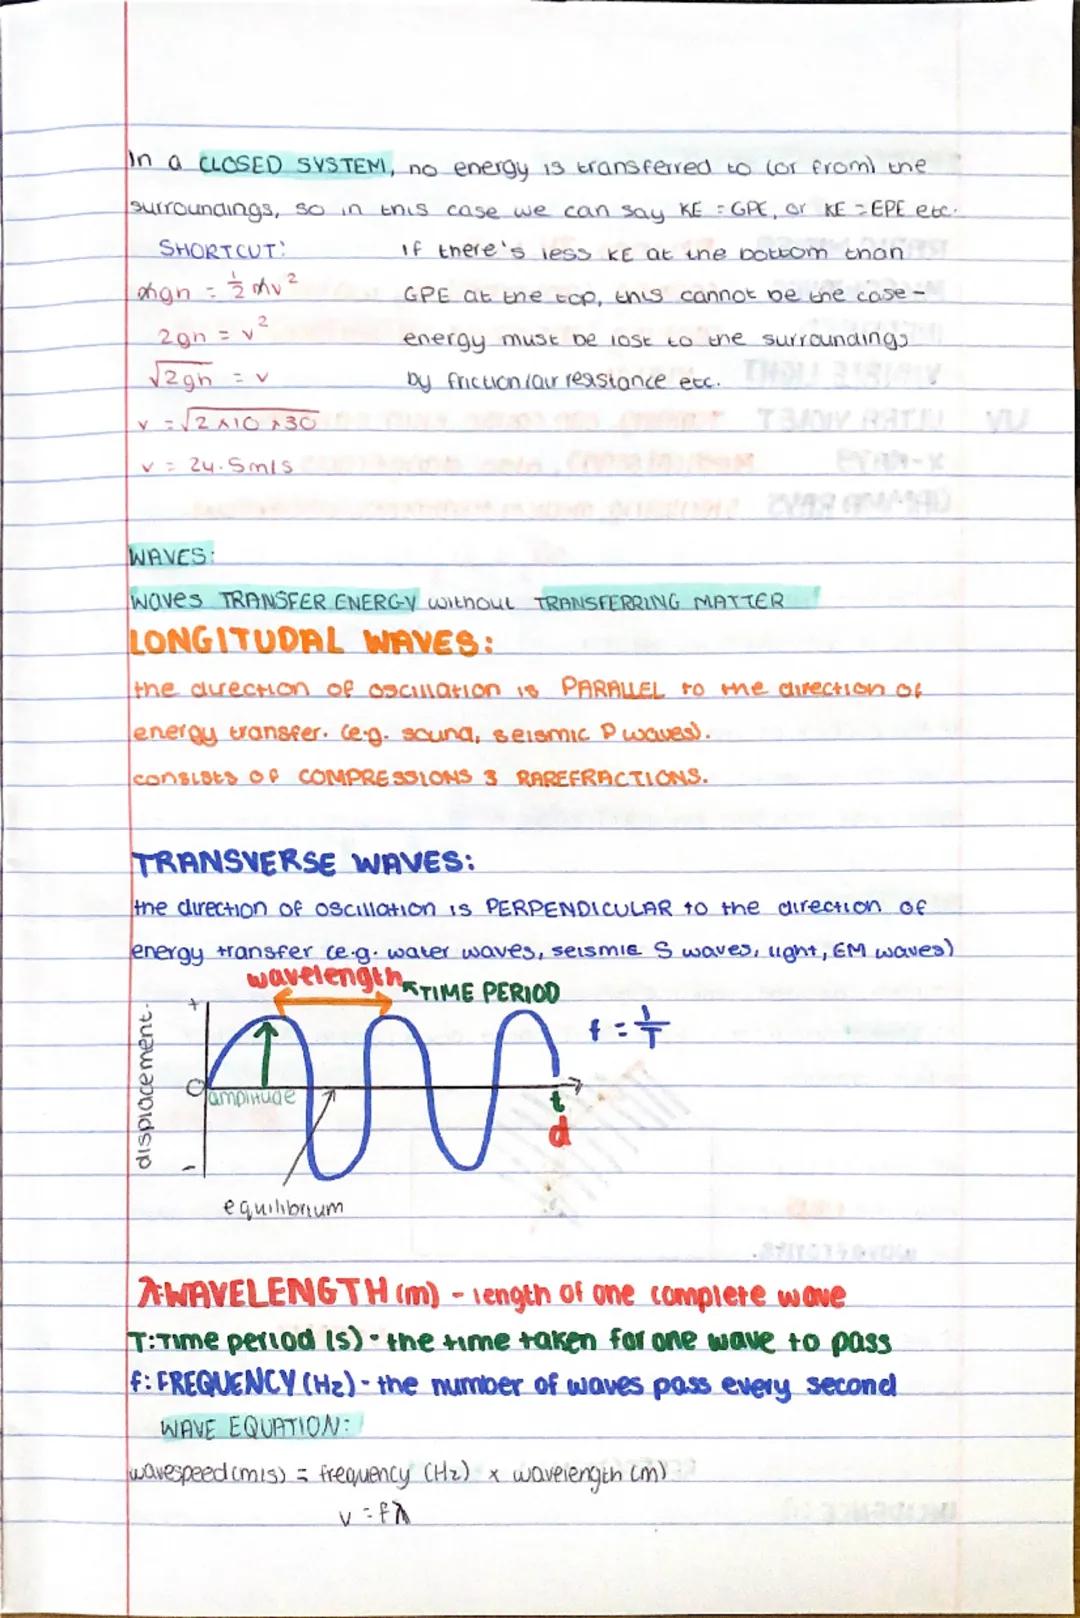 In a CLOSED SYSTEM, no energy is transferred to (or from) the
surroundings, so in this case we can say KE = GPE, or KE = EPE etc.
SHORTCUT:
mgh = ½ mv²
2gh = v²
√2gh = v
v = √2×10×30
v = 24.5m/s
If there's less KE at the bottom than
GPE at the top, this cannot be the case -
energy must be lost to the surroundings
by friction/air resistance etc.
WAVES:
Waves TRANSFER ENERGY without TRANSFERRING MATTER
LONGITUDAL WAVES:
the direction of oscillation is PARALLEL to the direction of
energy transfer. (e.g. sound, seismic P waves).
consists of COMPRESSIONS & RAREFRACTIONS.
TRANSVERSE WAVES:
the direction of oscillation is PERPENDICULAR to the direction of
energy transfer (e.g. water waves, seismic S waves, light, EM waves)
wavelength
TIME PERIOD
f = 1/T
displacement.
+
0
-
amplitude
t
d
equilibrium
λ: WAVELENGTH (m) - length of one complete wave
T: Time period (s) - the time taken for one wave to pass
f: FREQUENCY (Hz) - the number of waves pass every second
WAVE EQUATION:
wavespeed (m/s) = frequency (Hz) × wavelength (m)
v = fλ